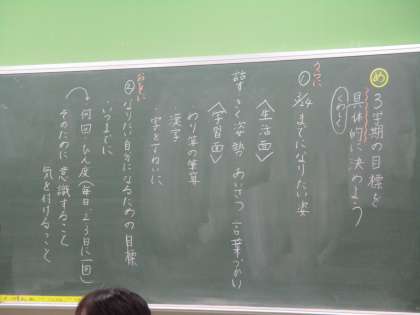 め 3学期の目標を
具体的に決めよう
くわしく
うえに
① 3/24 までになりたい姿
〈生活面〉
話すきく姿勢 あいさつ 言葉づかい
〈学習面〉
わり算の筆算
漢字
・字をていねいに
おくに
② なりたい自分になるための目標
・いつまでに
何回 ひん度(毎日、2、3日に一回)
そのために意識すること
気を付けること